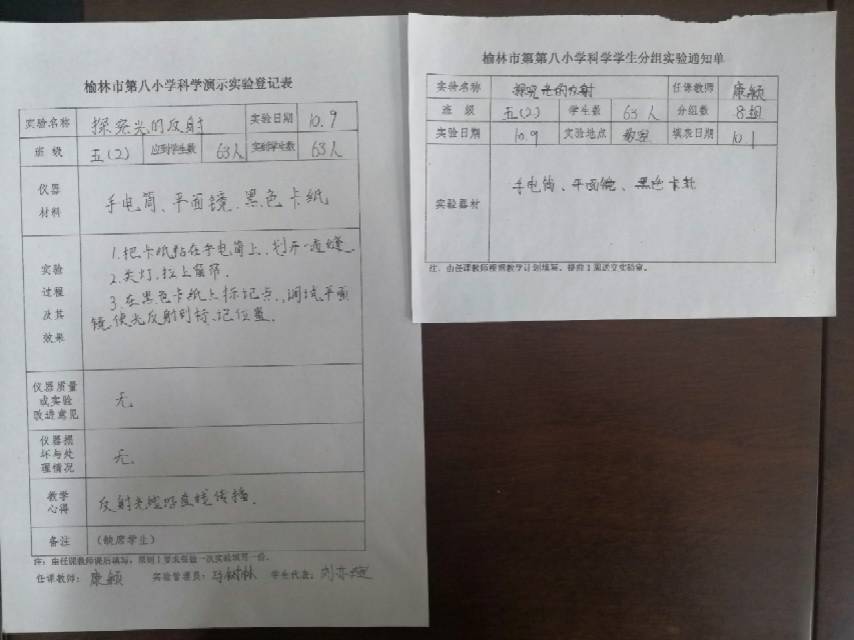 榆林市第八小学科学演示实验登记表
实验名称 探究光的反射 实验日期 10.9
班 级 五(2) 应到学生数 63人 实到学生数 63人
仪器
材料
手电筒、平面镜、黑色卡纸
实验
过程
及其
效果
1.把卡纸粘在手电筒上,划开一道缝.
2.关灯,拉上窗帘.
3.在黑色卡纸上标记点,调试平面
镜,使光反射到标记位置.
仪器质量
或实验
改进意见
无.
仪器损
坏与处
理情况
无.
教学
心得
反射光线沿直线传播.
备注 (缺席学生)
注:由任课教师课后填写,原则上要求每做一次实验填写一份.
任课教师: 康颖 实验管理员: 学生代表:
榆林市第第八小学科学学生分组实验通知单
实验名称 探究光的反射 任课教师 康颖
班 级 五(2) 学生数 63人 分组数 8组
实验日期 10.9 实验地点 教室 填表日期 10.1
实验器材
手电筒、平面镜、黑色卡纸
注:由任课教师根据教学计划填写,提前1周送交实验室。